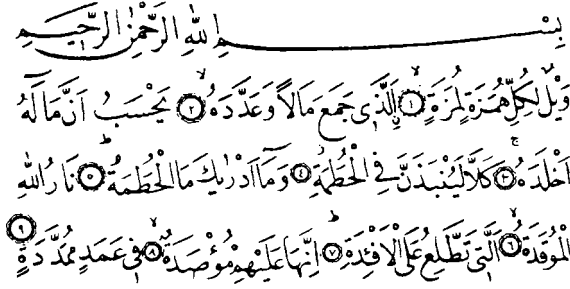 بِسْمِ اللهِ الرَّحْمٰنِ الرَّحِيمِ
وَيْلٌ لِكُلِّ هُمَزَةٍ لُمَزَةٍۙ ﴿١﴾ اَلَّذِى جَمَعَ مَالاً وَعَدَّدَهُۙ ﴿٢﴾ يَحْسَبُ اَنَّ مَالَهُٓ
اَخْلَدَهُۚ ﴿٣﴾ كَلَّا لَيُنْبَذَنَّ فِى الْحُطَمَةِۘ ﴿٤﴾ وَمَٓا اَدْرٰيكَ مَا الْحُطَمَةُۜ ﴿٥﴾ نَارُ اللهِ
الْمُوقَدَةُۙ ﴿٦﴾ اَلَّتِى تَطَّلِعُ عَلَى الْاَفْئِدَةِۜ ﴿٧﴾ اِنَّهَا عَلَيْهِمْ مُؤْصَدَةٌۙ ﴿٨﴾ فِى عَمَدٍ مُمَدَّدَةٍ ﴿٩﴾